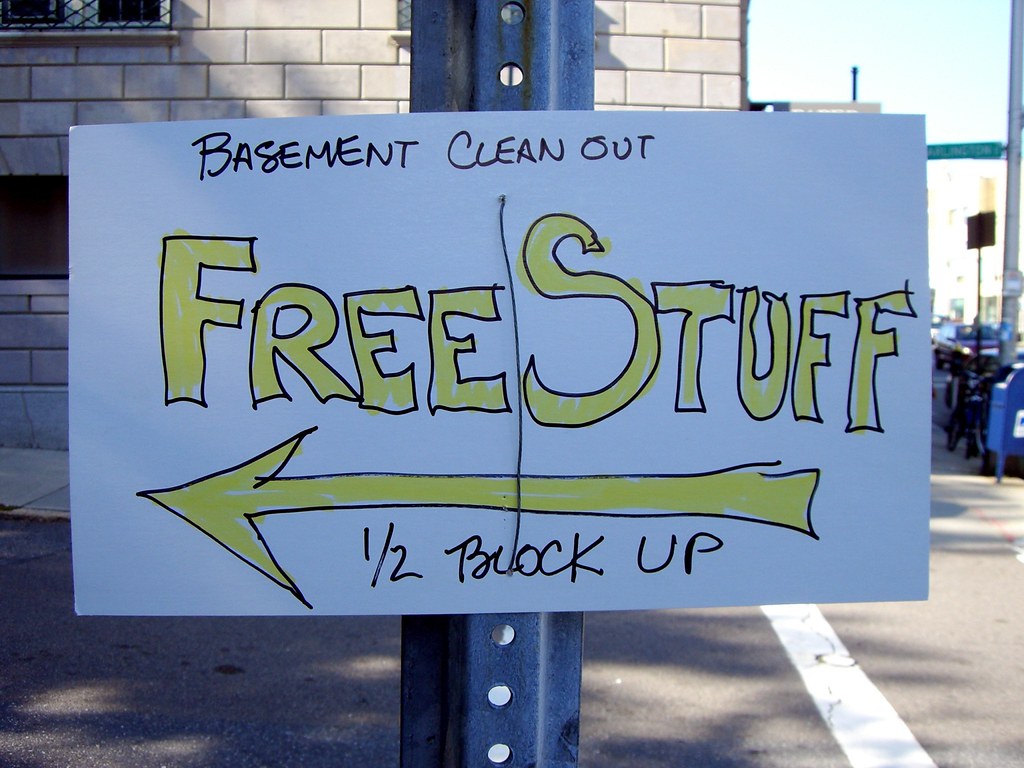 BASEMENT CLEAN OUT
FREE STUFF
1/2 BLOCK UP